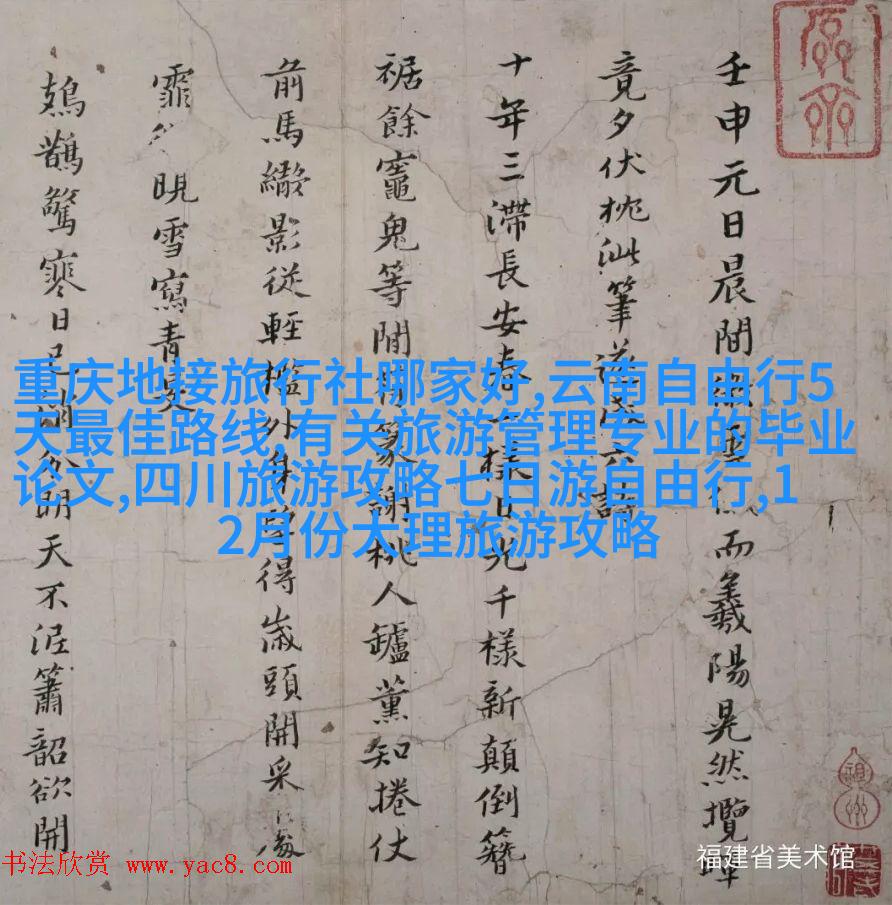 壬申元日晨間而羲陽晃然攬
竟夕伏枕泚筆
十年三滯長安春樣日光千樣新顛倒簪
裾餘竈鬼等閒篆謝桃人鑪薰知捲仗
前馬影從輕外身得歲頭開采
霏晛雪寫青旻
鳷鵲驚寒日明天不泥簫韶欲開
重庆地接旅行社哪家好,云南自由行5
天最佳路线,有关旅游管理专业的毕业
论文,四川旅游攻略七日游自由行,1
2月份大理旅游攻略
书法欣赏 www.yac8.com
福建省美术馆